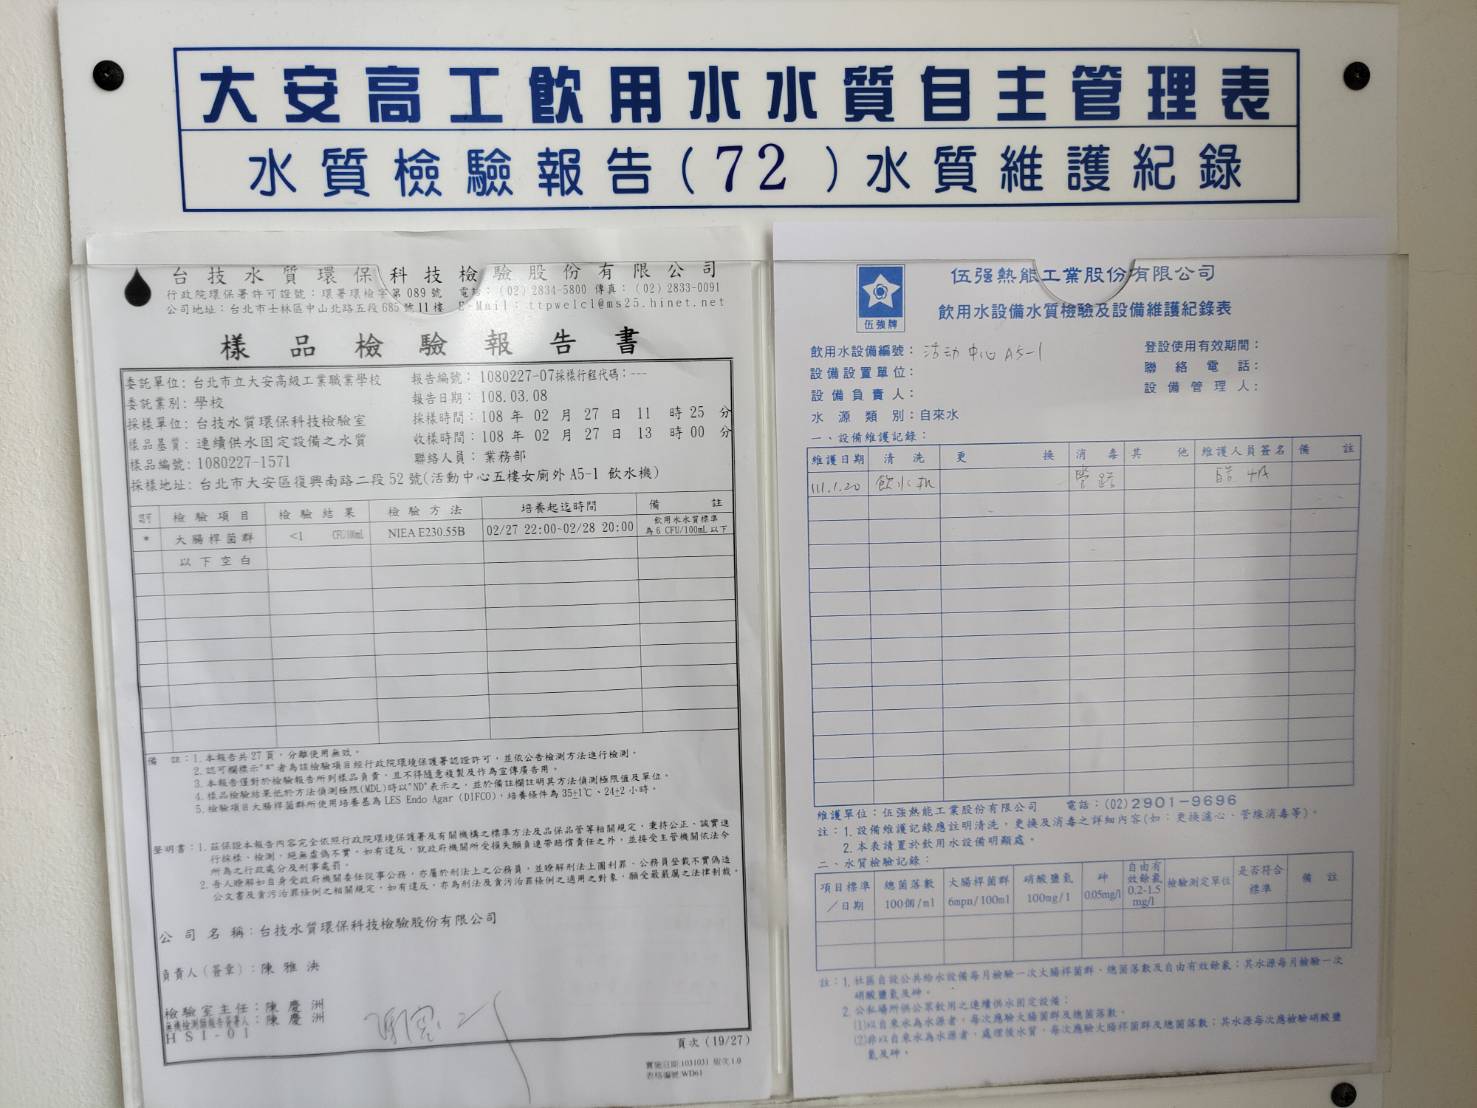 大安高工飲用水水質自主管理表
水質檢驗報告(72)水質維護紀錄
台技水質環保科技檢驗股份有限公司
行政院環保署許可證號：環署環檢字第089號 電話：(02)2834-5800 傳真：(02)2833-0091
公司地址：台北市士林區中山北路五段685號11樓 E-Mail：ttpwelcl@ms25.hinet.net
樣品檢驗報告書
委託單位：台北市立大安高級工業職業學校 報告編號：1080227-07採樣行程代碼：---
委託業別：學校 報告日期：108.03.08
採樣單位：台技水質環保科技檢驗室 採樣時間：108年02月27日11時25分
樣品基質：連續供水固定設備之水質 收樣時間：108年02月27日13時00分
樣品編號：1080227-1571 聯絡人員：業務部
採樣地址：台北市大安區復興南路二段52號(活動中心五樓女廁外A5-1 飲水機)
認可 檢驗項目 檢驗結果 檢驗方法 培養起迄時間 備註
* 大腸桿菌群 <1 CFU/100mL NIEA E230.55B 02/27 22:00-02/28 20:00 飲用水水質標準
為6 CFU/100mL以下
以下空白
備註：1.本報告共27頁，分離使用無效。
2.認可欄標示"*"者為該檢驗項目經行政院環境保護署認證許可，並依公告檢測方法進行檢測。
3.本報告僅對於檢驗報告所列樣品負責，且不得隨意複製及作為宣傳廣告用。
4.樣品檢驗結果低於方法偵測極限(MDL)時以"ND"表示之，並於備註欄註明其方法偵測極限值及單位。
5.檢驗項目大腸桿菌群所使用培養基為LES Endo Agar (DIFCO)，培養條件為35±1℃、24±2小時。
聲明書：1.茲保證本報告內容完全依照行政院環境保護署及有關機構之標準方法及品保品管等相關規定，秉持公正、誠實進
行採樣、檢測，絕無虛偽不實，如有違反，就政府機關所受損失願負連帶賠償責任之外，並接受主管機關依法令
所為之行政處分及刑事處罰。
2.吾人瞭解如自身受政府機關委任從事公務，亦屬於刑法上之公務員，並瞭解刑法上圖利罪、公務員登載不實偽造
公文書及貪污治罪條例之相關規定，如有違反，亦為刑法及貪污治罪條例之適用之對象，願受最嚴厲之法律制裁。
公司名稱：台技水質環保科技檢驗股份有限公司
負責人(簽章)：陳雅泱
檢驗室主任：陳慶洲
無機檢測類報告簽署人：陳慶洲
HSI-01
頁次(19/27)
實施日期:103103) 版次1.0
表格編號 WD61
伍強牌
伍强熱能工業股份有限公司
飲用水設備水質檢驗及設備維護紀錄表
飲用水設備編號：活动中心 A5-1 登設使用有效期間：
設備設置單位： 聯絡電話：
設備負責人： 設備管理人：
水源類別：自來水
一、設備維護記錄：
維護日期 清洗 更換 消毒 其他 維護人員簽名 備註
111.1.20 飲水机 管路
維護單位：伍强熱能工業股份有限公司 電話：(02)2901-9696
註：1.設備維護記錄應註明清洗、更換及消毒之詳細內容(如：更換濾心、管線消毒等)。
2.本表請置於飲用水設備明顯處。
二、水質檢驗記錄：
項目標準／日期 總菌落數 100個/ml 大腸桿菌群 6mpn/100ml 硝酸鹽氮 100mg/l 砷 0.05mg/l 自由有效餘氯 0.2-1.5 mg/l 檢驗測定單位 是否符合標準 備註
註：1.社區自設公共給水設備每月檢驗一次大腸桿菌群、總菌落數及自由有效餘氯；其水源每月檢驗一次
硝酸鹽氮及砷。
2.公私場所供公眾飲用之連續供水固定設備：
(1)以自來水為水源者，每次應驗大腸菌群及總菌落數。
(2)非以自來水為水源者，處理後水質，每次應驗大腸桿菌群及總菌落數；其水源每次應檢驗硝酸鹽
氮及砷。